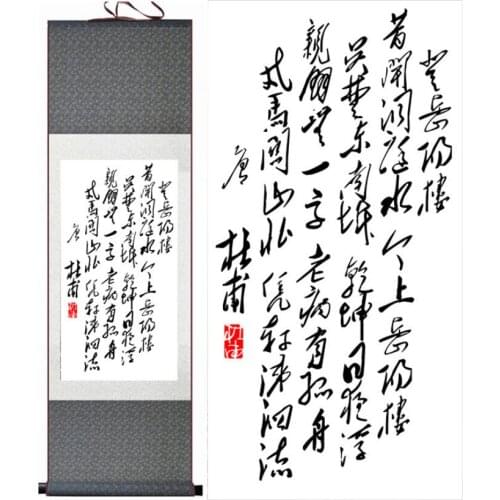 登岳阳楼
昔闻洞庭水 今上岳阳楼
吴楚东南坼 乾坤日夜浮
親朋无一字 老病有孤舟
戎马关山北 凭轩涕泗流
唐
杜甫
登岳阳楼
昔闻洞庭水 今上岳阳楼
吴楚东南坼 乾坤日夜浮
親朋无一字 老病有孤舟
戎马关山北 凭轩涕泗流
唐
杜甫